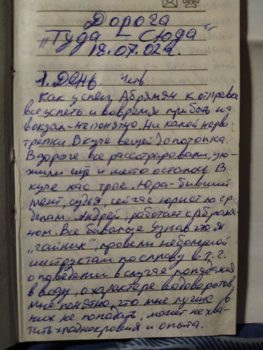 Дорога
"Туда - Сюда"
18.07.02г.
1. День. Четв
Как успел Абрамян к отправке
все успеть и вовремя прибыть на
вокзал - непонятно. Ни какой нерво-
трепки. Вкуче вещей до потолка.
В дороге все рассортировали, уло-
жили ещё и место осталось. В
купе нас трое. Юра - бывший
мент, судья, сейчас юрист на ср.
Андрей, работает с Абрамя-
ном. Все бывалые. Узнав что я
"чайник", провели небольшой
инструктаж по сплаву в т.ч.
о поведении в случае попадания
в воду, о характере водоворотов,
мне понятно, что мне лучше в
них не попадать, может не хва-
тить хладнокровия и опыта.